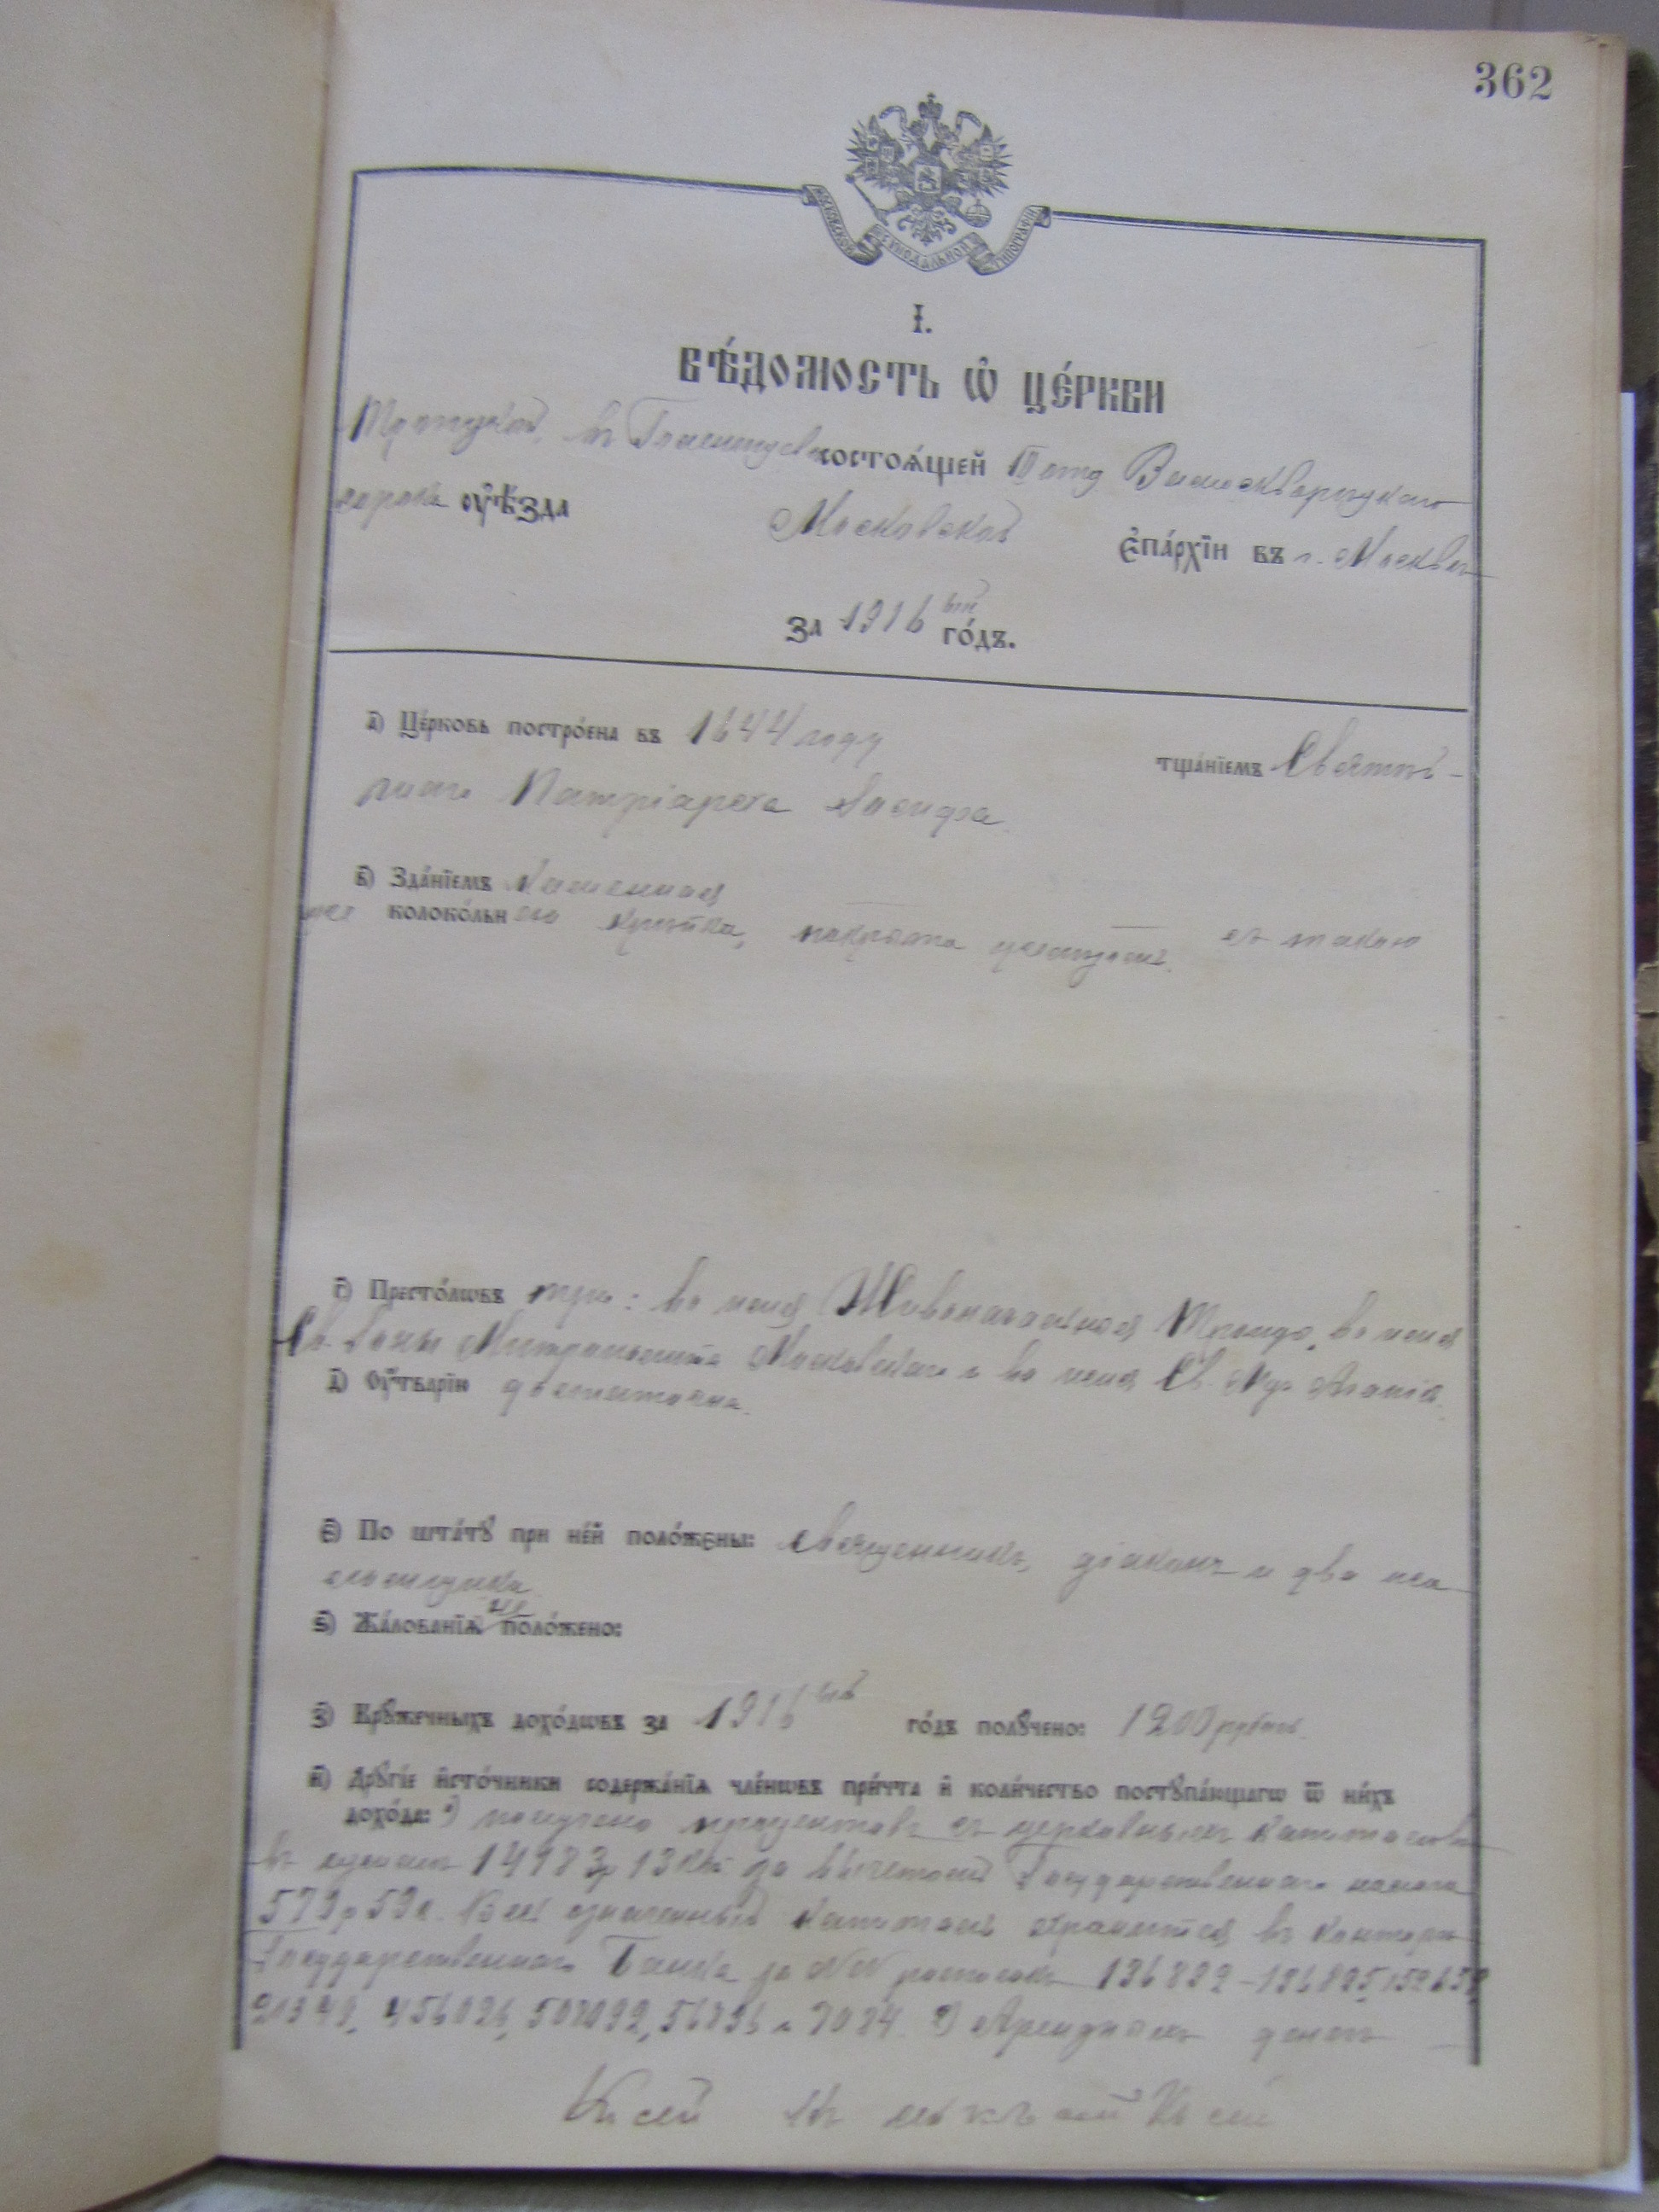 362
МОСКОВСКОЙ СѴНОДАЛЬНОЙ ТИПОГРАФІИ
І.
ВѢ́ДОМОСТЬ Ѡ҆ ЦЕ́РКВИ
Троицкой, въ состоѧ́щей III отд Замоскворѣцкаго
сорока ᲂу҆ѣ́зда Московской Є҆па́рхїи въ г. Москвѣ
За 1916 ый го́дъ.
а҃) Це́рковь постро́ена въ 1644 году тща́нїемъ Святѣй-
шаго Патріарха Іосифа.
в҃) Зда́нїемъ Каменная съ такою
же колоко́льн ею крѣпка, покрыта желѣзомъ.
г҃) Престо́лѡвъ три: во имя Живоначальныя Троицы, во имя
Св. Іоны Митрополита Московскаго и во имя Св. Муч.
д҃) Оу҆́тварїю достаточна.
є҃) По шта́тꙋ при не́й поло́жены: Священникъ, діаконъ и два пса-
ломщика.
ѕ҃) Жа́лованїѧ не поло́жено:
з҃) Крꙋ́жечныхъ дохо́дѡвъ за 1916 ый го́дъ полꙋ́чено: 1200 рублей.
и҃) Дрꙋгі́е и҆сто́чники содержа́нїѧ чле́нѡвъ при́чта и҆ коли́чество постꙋпа́ющагѡ ѿ ни́хъ
дохо́да: 1) получено процентовъ съ церковныхъ капиталовъ
въ 13 коп за вычетомъ Государственнаго налога
579 р 59 к. означенный капиталъ хранится въ Конторѣ
Государственнаго Банка за №№ росписокъ 136892-136895, 152638,
456026, 508092, 56896 и 7084. 2) Арендныхъ денегъ